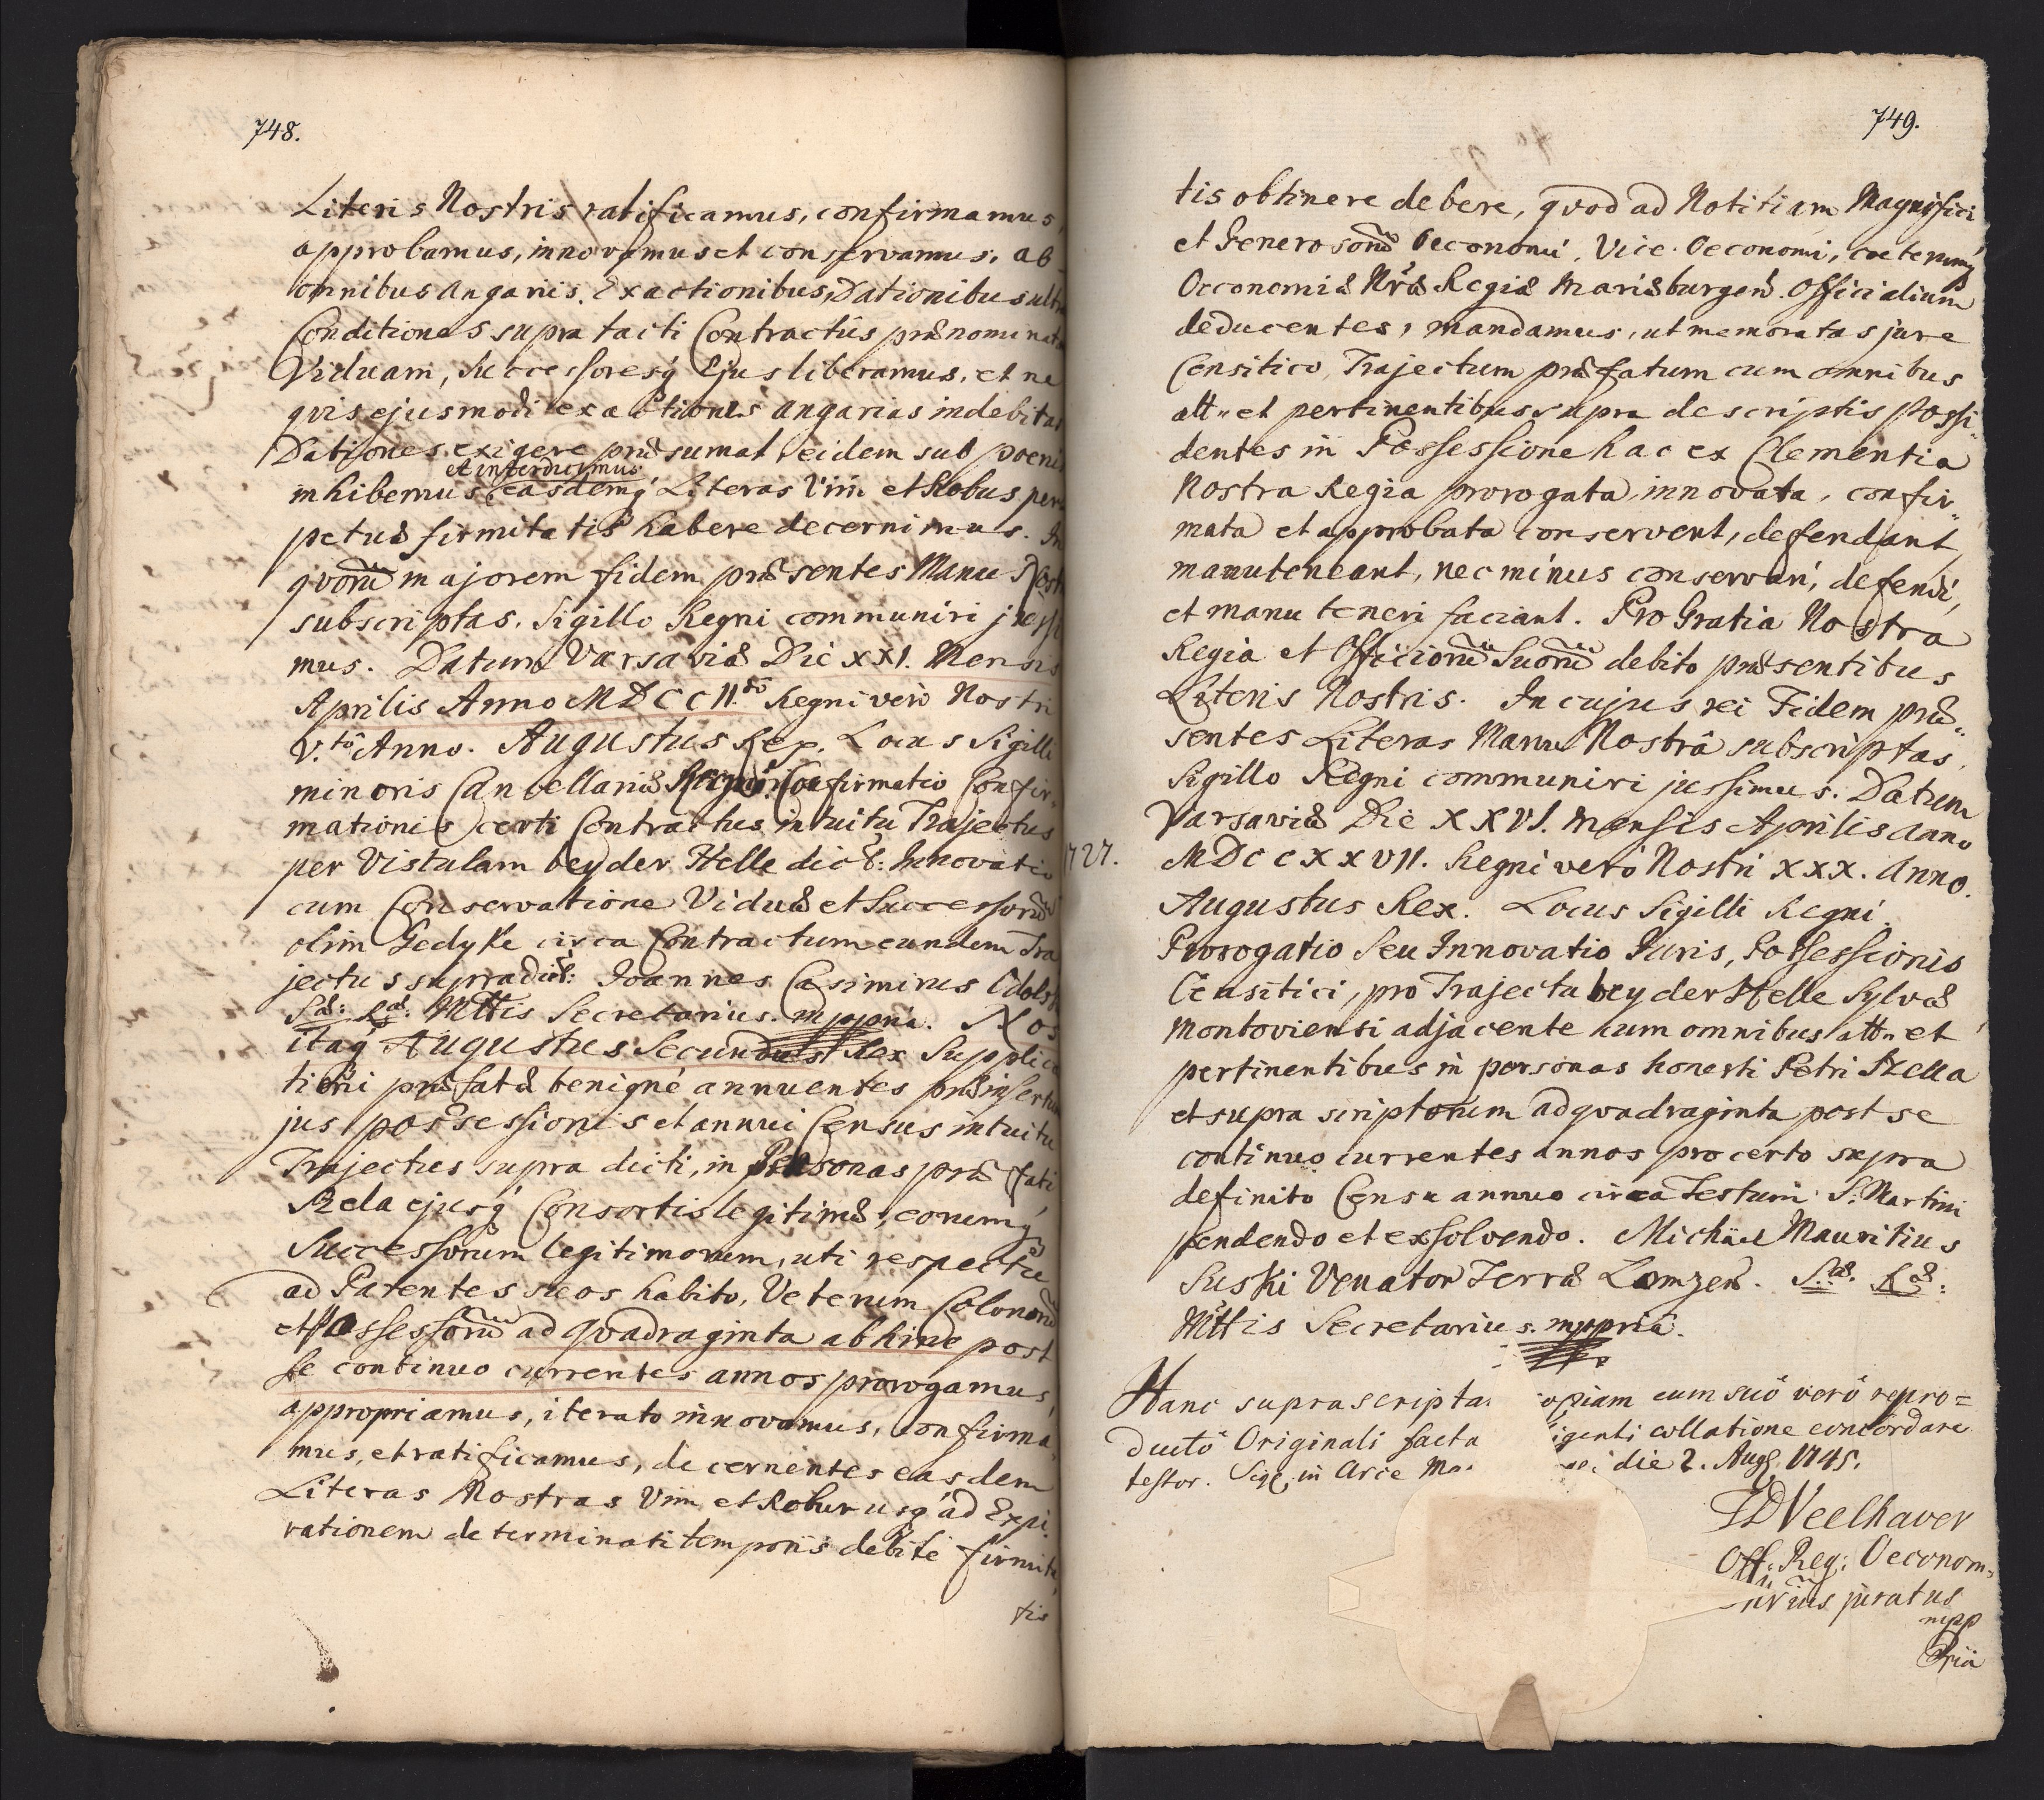 748.
Literis Nostris ratificamus, confirmamus,
approbamus, innovamus et conservamus, ab
omnibus angariis, Exactionibus, Dationibus ultra
Conditiones supra tacti Contractûs prænominatam
Viduam, Successoresq́ Ejus liberamus, et ne
qvis ejusmodi exactiones angarias indebitas
Dationes exigere præsumat eidem sub poenis
et interdicimus
inhibemus easdemq́ Literas Vim et Robus per
petuæ firmitatis habere decernimus. In
qvorũ majorem fidem præsentes Manu Nostra
subscriptas, Sigillo Regni communiri jussi
mus. Datum Varsaviæ Die XXI. Mensis
Aprilis Anno MDCCII.do Regni verò Nostri
V.to Anno. Augustus Rex. Locus Sigilli
minoris Cancellariæ Regni. Confirmatio Confir-
mationis certi Contractus intuitu Trajectus
per Vistulam bey der Helle dict: Innovatio
cum Conservatione Viduæ et Successorũ
olim Gedyke circa Contractum eundem Tra
jectus supradict: Joannes Casimirus
S.æ: R.æ: Mttis Secretarius. mppria. Nos
itaq́ Augustus Secundus Rex Supplica
tioni præfatæ benigné annuentes præinsertum
jus possessionis et annui Census intuitu
Trajectus supra dicti, in Personas præfati
Rzela ejusq́ Consortis legitimæ, eorumq́
Successorum legitimorum, uti respectu
ad Patentes suos habito, Veterum Colonorũ
et Possessorũ ad qvadraginta abhinc post
se continuo currentes annos prorogamus,
appropriamus, iterato innovamus, confirma
mus, et ratificamus, decernentes easdem
Literas Nostras Vim et Robur usq́ ad Expi
rationem determinati temporis debite firmita
tis
749.
tis obtinere debere, qvod ad Notitiam Magnifici
et Generosorũ Oeconomi, Vice-Oeconomi, coeterumq́
Oeconomiæ Nræ Regiæ Mariæburgens. Officialium
deducentes, mandamus, ut memoratas jure
Censitico, Trajectum præfatum cum omnibus
att„ et pertinentibus supra descriptis Possi„
dentes in Possessione hac ex Clementia
Nostra Regia prorogata, innovata, confir„
mata et approbata conservent, defendant,
manuteneant, nec minus conservari, defendi,
et manu teneri faciant. Pro Gratia Nostra
Regia et Officiorũ Suorũ debito præsentibus
Literis Nostris. In cujus rei Fidem præ„
sentes Literas Manu Nostrâ subscriptas,
Sigillo Regni communiri jussimus. Datum
Varsaviæ Die XXVI. Mensis Aprilis Anno
1727.
MDCCXXVII. Regni verò Nostri XXX. Anno.
Augustus Rex. Locus Sigilli Regni.
Prorogatio seu Innovatio Juris, Possessionis
Censitici, pro Trajectu bey der Helle Sylvæ
Montoviensi adjacente cum omnibus att„ et
pertinentibus in personas honesti Petri Rzella
et supra scriptorum ad qvadraginta post se
continuo currentes annos pro certo supra
definito Censu annuo circa Festum S. Martini
pendendo et exsolvendo. Michäel Mauritius
Suski Venator Terræ Lomzens. S.æ. R.æ:
Mttis Secretarius. mppriâ.
Hanc suprascripta opiam cum suô verô repro=
ductô Originali facta igenti collatione concordare
testor. Sigl in Arce Ma die 2. Aug. 1745.
Veelhaver
Off: Reg: Oeconom.
juratus
mpp
Pria